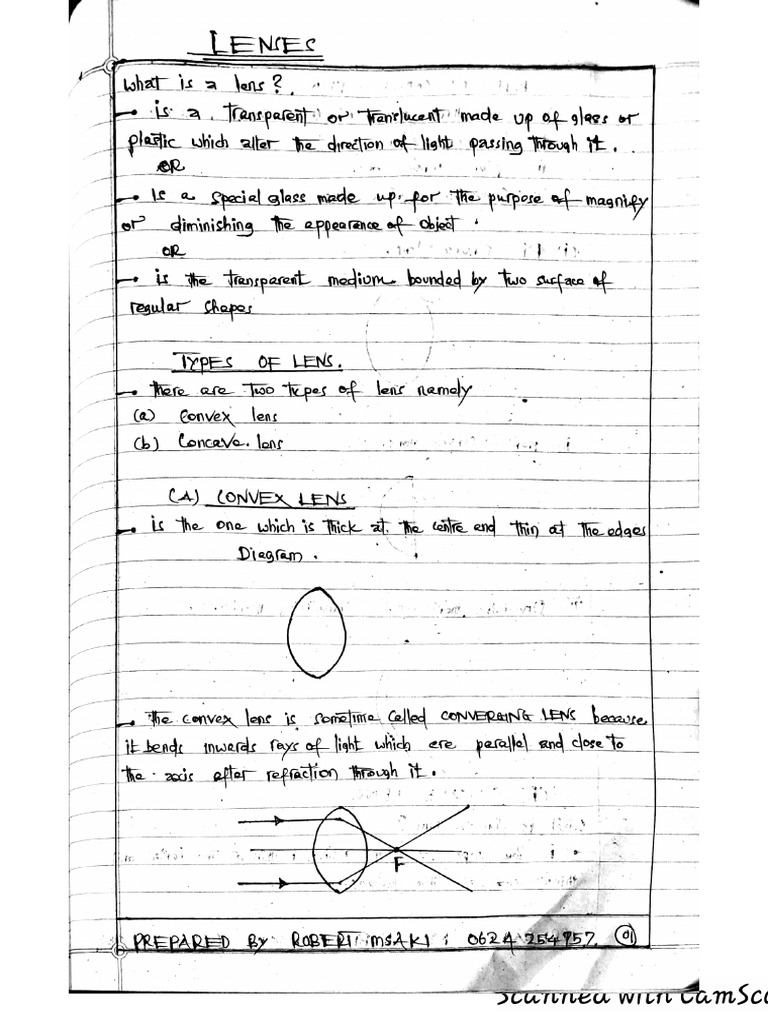 LENSES
What is a lens?
→ is a transparent or translucent made up of glass or
plastic which alter the direction of light passing through it.
OR
→ Is a special glass made up for the purpose of magnify
or diminishing the appearance of object.
OR
→ is the transparent medium bounded by two surface of
regular shapes
TYPES OF LENS.
→ there are two types of lens namely
(a) convex lens
(b) Concave lens
(A) CONVEX LENS
→ is the one which is thick at the centre and thin at the edges
Diagram.
→ the convex lens is sometime called CONVERGING LENS because
it bends inwards rays of light which are parallel and close to
the axis after refraction through it.
F
PREPARED BY ROBERT MSAKI : 0624 254757. 01
Scanned with CamSc